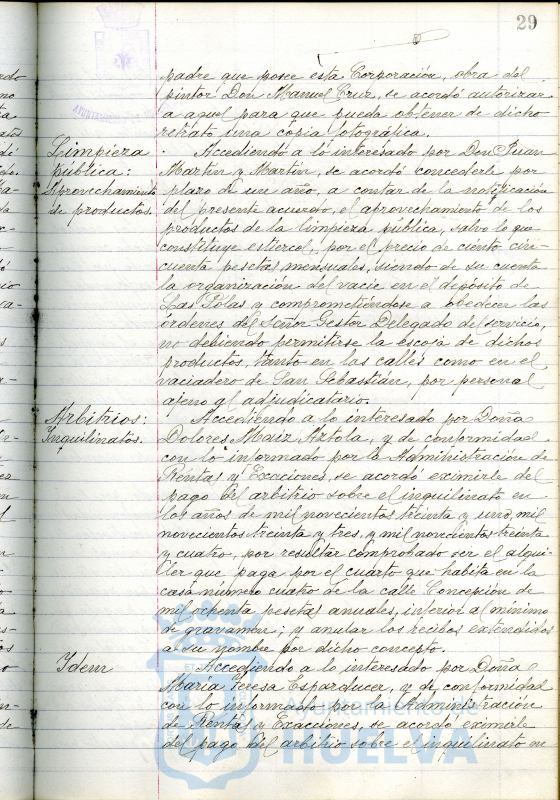 29
padre que posee esta Corporación, obra del
pintor Don Manuel Cruz, se acordó autorizar
a aquel para que pueda obtener de dicho
retrato una copia fotográfica.
Limpieza pública: Aprovechamiento de productos.
Accediendo a lo interesado por Don Juan
Martín y Martín, se acordó concederle por
plazo de un año, a contar de la notificación
del presente acuerdo, el aprovechamiento de los
productos de la limpieza pública, salvo lo que
constituye estiercol, por el precio de ciento cin-
cuenta pesetas mensuales, siendo de su cuenta
la organización del vacie en el depósito de
Las Polas y comprometiéndose a obedecer las
órdenes del Señor Gestor Delegado del servicio,
no debiendo permitirse la escoja de dichos
productos, tanto en las calles como en el
vaciadero de San Sebastián, por personal
ajeno al adjudicatario.
Arbitrios: Inquilinatos.
Accediendo a lo interesado por Doña
Dolores Maiz Astola, y de conformidad
con lo informado por la Administración de
Rentas y Exaciones, se acordó eximirle del
pago del arbitrio sobre el inquilinato en
los años de mil novecientos treinta y uno, mil
novecientos treinta y tres, y mil novecientos treinta
y cuatro, por resultar comprobado ser el alqui-
ler que paga por el cuarto que habita en la
casa número cuatro de la calle Concepción de
mil ochenta pesetas anuales, inferior al mínimo
de gravamen; y anular los recibos extendidos
a su nombre por dicho concepto.
Idem
Accediendo a lo interesado por Doña
María Teresa Esparducer, y de conformidad
con lo informado por la Administración
de Rentas y Exacciones, se acordó eximirle
del pago del arbitrio sobre el inquilinato en
HUELVA